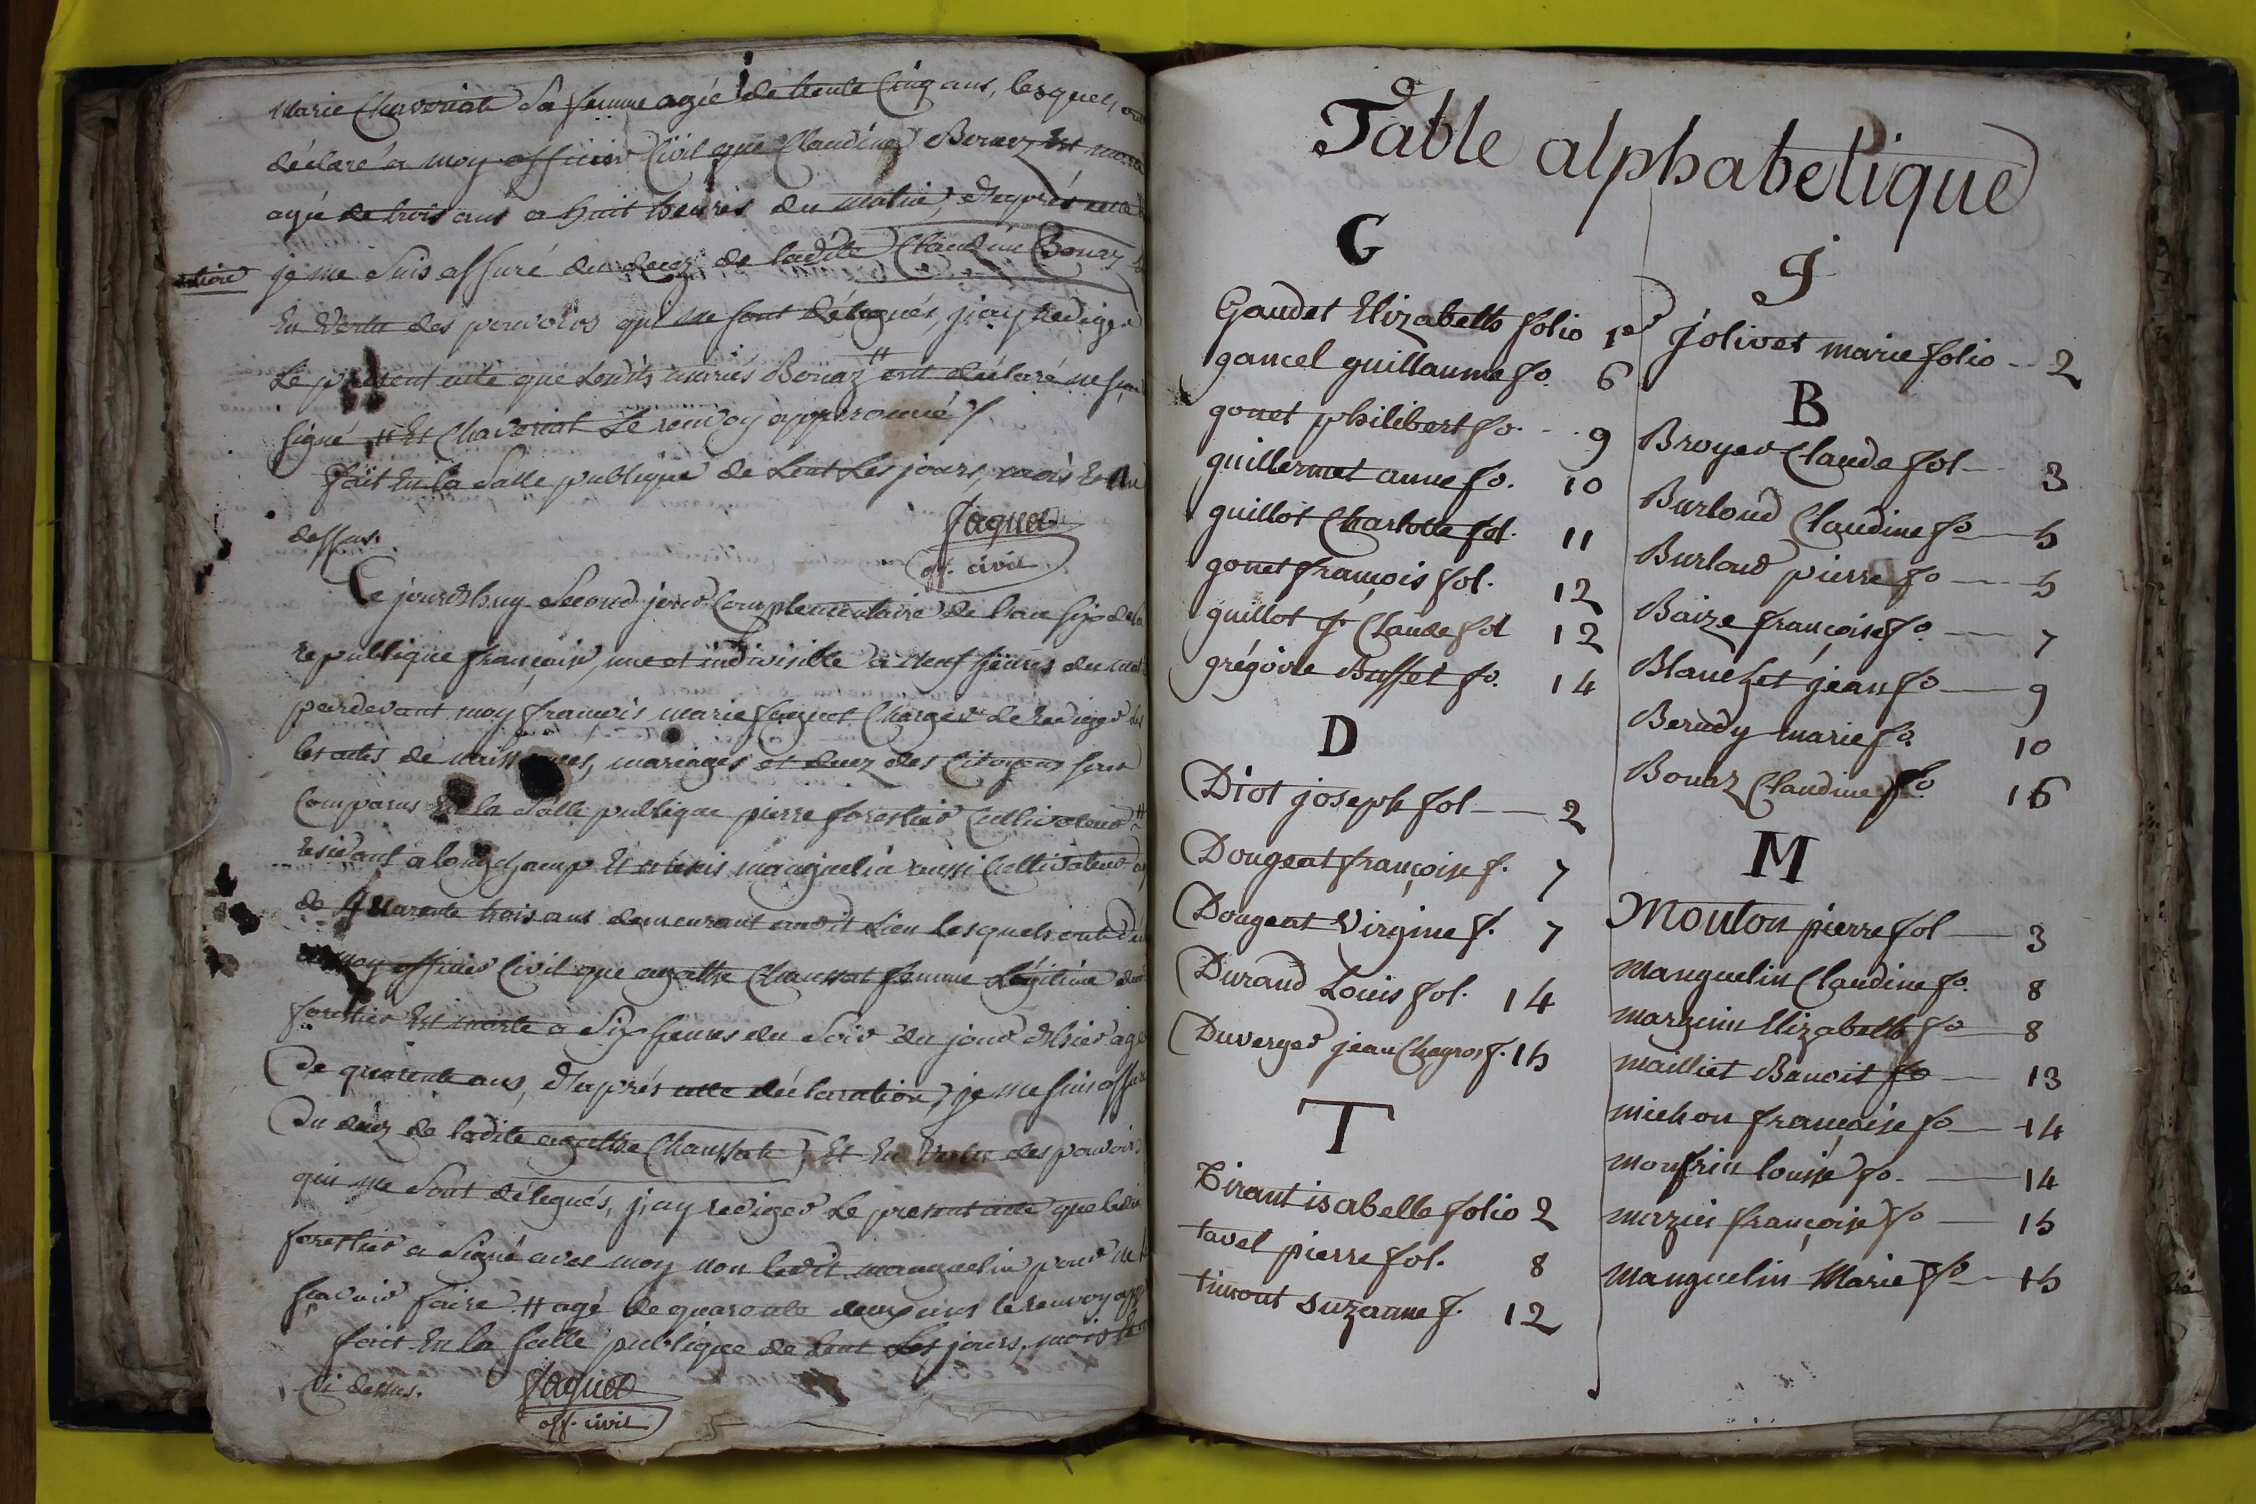 Marie Chavoriat Sa femme agée de trente Cinq ans, lesquels ont
déclaré a moy officier Civil que Claudine Bonaz Est morte
agée de trois ans a huit heures du matin, d'après cette
je me suis assuré du decez de ladite Claudine Bonaz
En Vertu des pouvoirs qui me sont délégués, j'ay Rediger
Le présent acte que Lesdits mariés Bonaz # ont déclaré ne
signé # Et Chavoriat Le renvoy approuvé
fait En la Salle publique de Lent Les jours, mois Et an
dessus.
Jaquet
off. civil
Ce jourdhuy Second jour Complementaire de l'an Six de la
republique françoise, une et indivisible a neuf heures du
pardevant moy françois marie Jaquet Charger de Rediger
les actes de naissances, mariages et decez des Citoyens sont
Comparus En la Salle publique pierre forestier Cultivateur #
residant a longchamp Et manguelin aussi Cultivateur
de quarante trois ans demeurant audit Lieu Lesquels ont
a moy officier Civil que agathe Chaussat femme Légitime
forestier Est morte a Six heures du Soir du jour d'hier agée
De quarente ans, d'après cette déclaration, je me suis assuré
Du decez de ladite agathe Chaussat, Et En Vertu des pouvoirs
qui me Sont délégués, j'ay rediger Le present acte que ledit
forestier a Signé avec moy non ledit manguelin pour ne
sçavoir faire # agé de quarante deux ans le renvoy
fait En la Salle publique de Lent Les jours, mois
Ci dessus.
Jaquet
off. civil
Table alphabetique
G
Gaudet Elizabeth folio 1er
gancel guillaume fo. 6
gonet philibert fo. 9
guillermet anne fo. 10
guillot Charlotte fol. 11
gonet françois fol. 12
guillot Claude fol 12
grégoire Buffet fo. 14
D
Diot joseph fol 2
Dougeat françoise f. 7
Dougeat Virgine f. 7
Durand Louis fol. 14
Duverger jean f. 15
T
Tirant isabelle folio 2
tavel pierre fol. 8
timont suzanne f. 12
J
jolivet marie folio 2
B
Broyer Claude fol 3
Burloud Claudine fo 5
Burloud pierre fo 5
Baize françoise fo. 7
Blanchet jean fo 9
Berudy marie fo. 10
Bonaz Claudine fo. 16
M
Mouton pierre fol 3
manguelin Claudine fo. 8
marguin Elizabeth fo 8
mailliet Benoit fo 13
michon françoise fo 14
monfrin louise fo. 14
mazin françoise fo 15
manguelin Marie fo 15